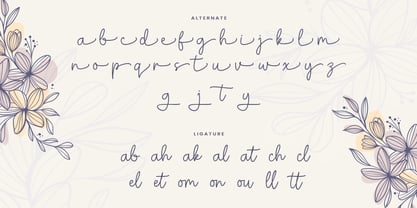 ALTERNATE
a b c d e f g h i j k l m
n o p q r s t u v w x y z
g j t y
LIGATURE
ab ah ak al at ch cl
el et om on ou ll tt